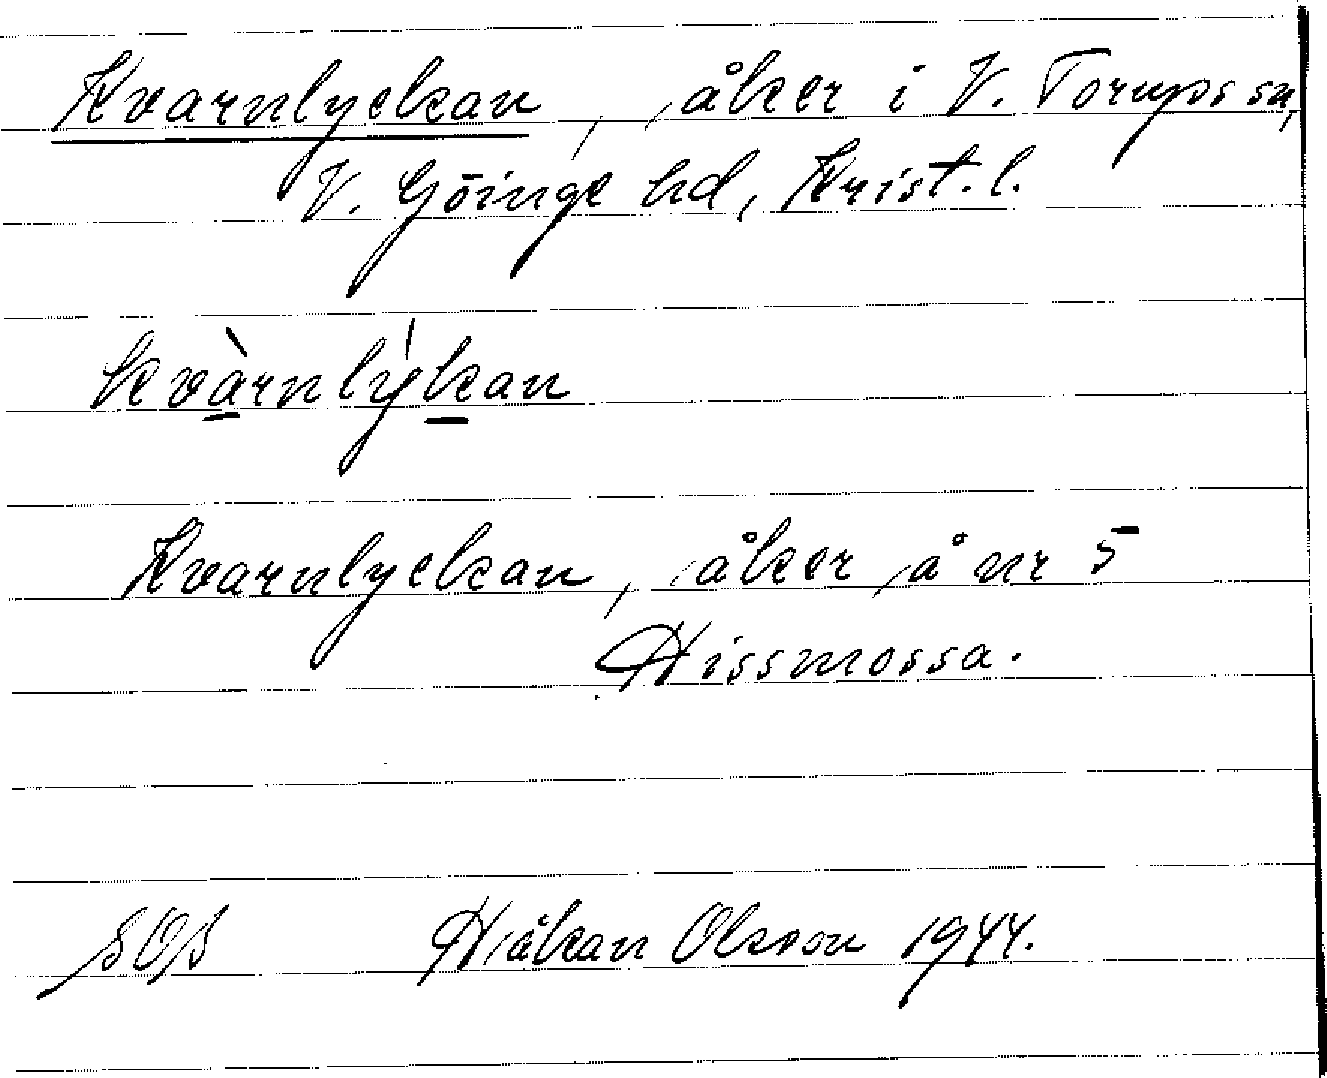 Kvarnlyckan, åker i V. Torups sn,
V. Göinge hd, Krist. l.
kvàrnlỳkan
Kvarnlyckan, åker å nr 5
Hissmossa.
SOS Håkan Olsson 1944.